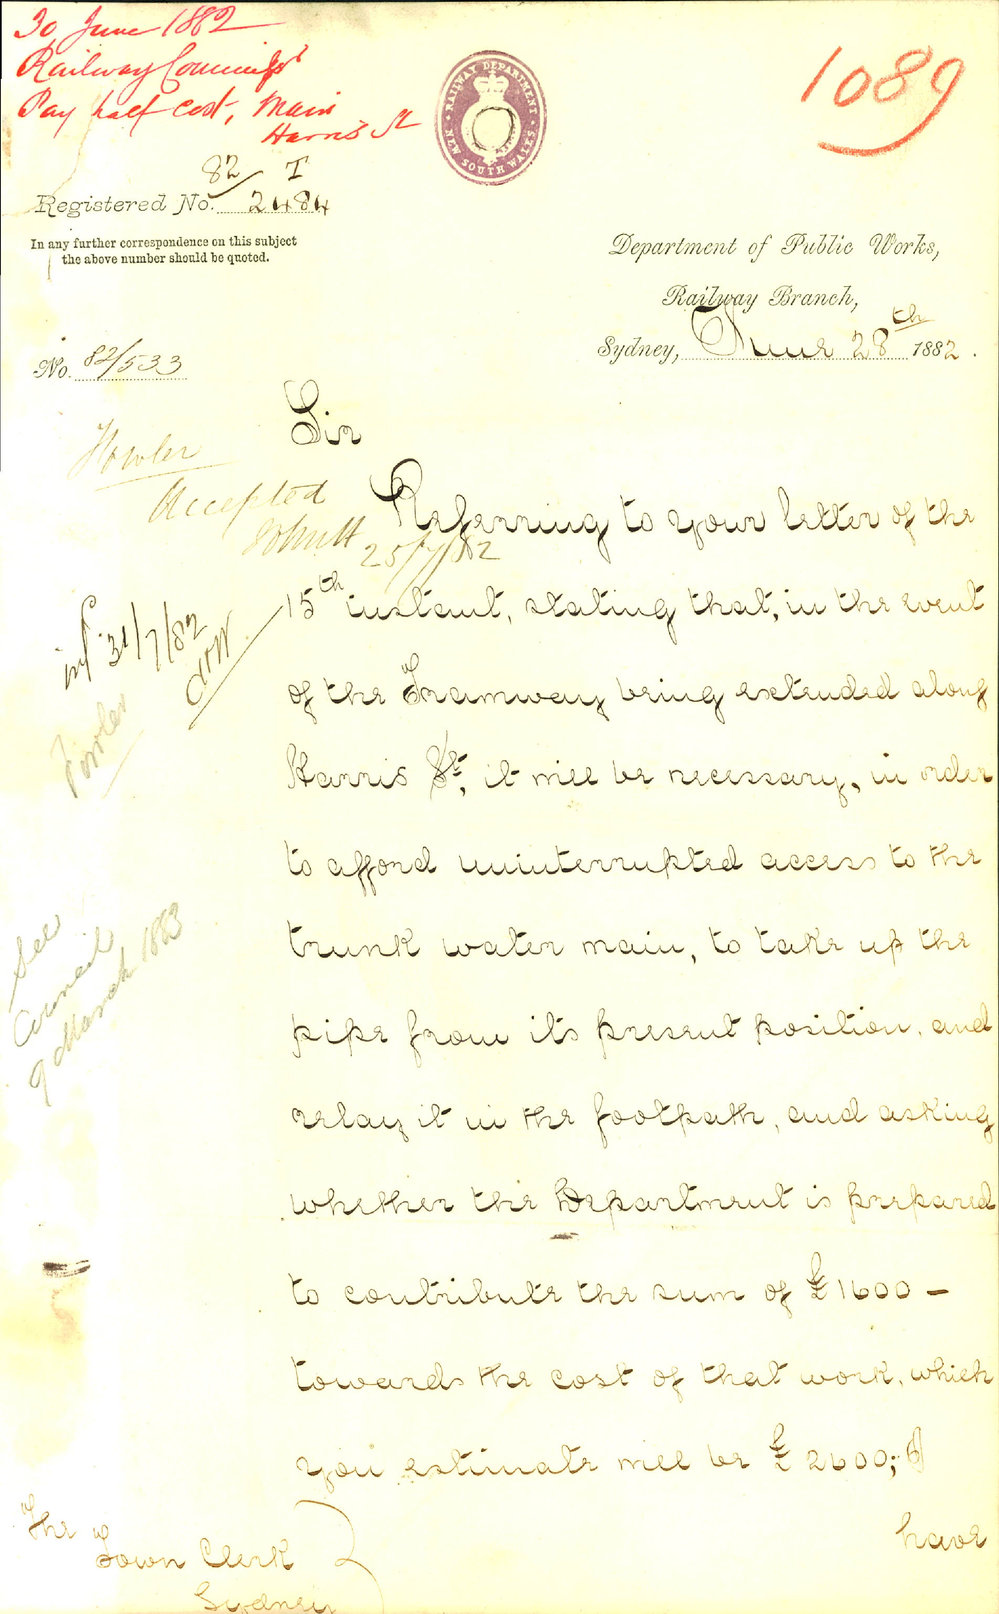 30 June 1882
Railway Commissr
Pay half cost, Main
Harris St
1089
RAILWAY DEPARTMENT
NEW SOUTH WALES
82 T
Registered No. 2484
In any further correspondence on this subject
the above number should be quoted.
Department of Public Works,
Railway Branch,
Sydney, June 28th 1882.
No. 82/533
Sir
Fowler
Accepted
25/7/82
Referring to your letter of the
15th instant, stating that, in the event
of the Tramway being extended along
Harris St, it will be necessary, in order
to afford uninterrupted access to the
trunk water main, to take up the
pipe from its present position, and
relay it in the footpath, and asking
whether the Department is prepared
to contribute the sum of £1600 –
towards the cost of that work, which
you estimate will be £2600; I
have
inf 31/7/82
Fowler
See
Council
9 March 1883
The Town Clerk
Sydney